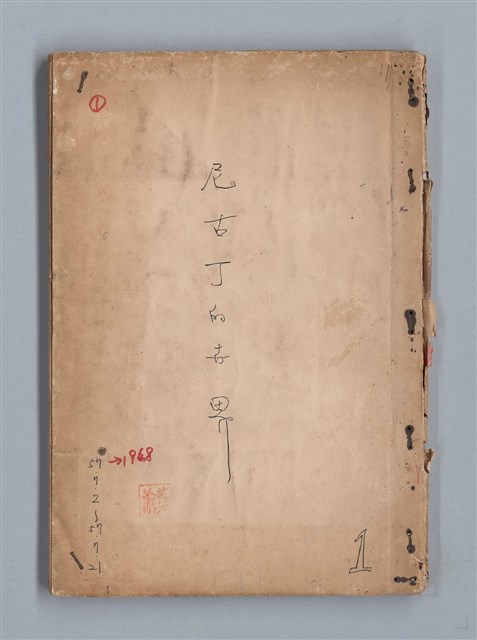 ①
尼古丁的世界
57.7.2~57.7.21
→1968
1